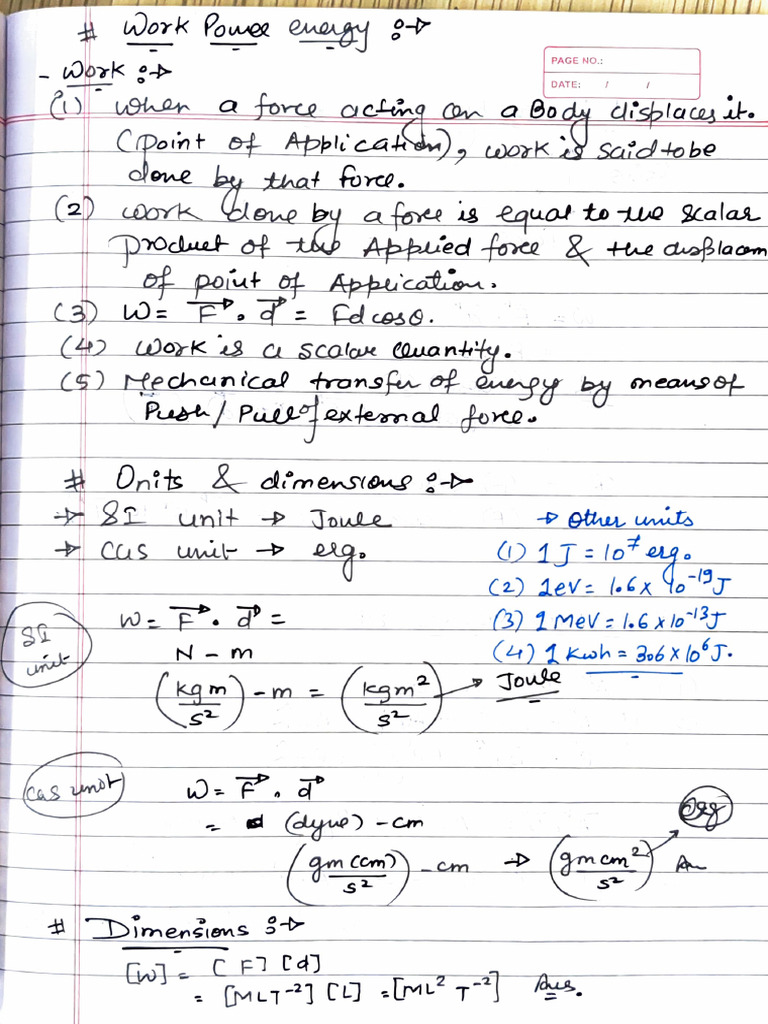 # Work Power energy :->
PAGE NO.:
DATE: / /
- Work :->
(1) When a force acting on a Body displaces it.
(point of Application), work is said to be
done by that force.
(2) Work done by a force is equal to the scalar
product of the Applied force & the displacem
of point of Application.
(3) W = F⃗ . d⃗ = Fd cosθ.
(4) Work is a scalar Quantity.
(5) Mechanical transfer of energy by means of
Push / Pull of external force.
# Units & dimensions :->
-> SI unit -> Joule
-> CGS unit -> erg.
-> Other units
(1) 1 J = 10⁷ erg.
(2) 1eV = 1.6 x 10⁻¹⁹ J
(3) 1 MeV = 1.6 x 10⁻¹³ J
(4) 1 Kwh = 3.6 x 10⁶ J.
SI unit
W = F⃗ . d⃗ =
N - m
(kg m / s²) - m = (kgm² / s²) -> Joule
CGS unit
W = F⃗ . d⃗
= (dyne) - cm
(gm (cm) / s²) - cm -> (gm cm² / s²) -> Erg
# Dimensions :->
[W] = [F] [d]
= [MLT⁻²] [L] = [ML² T⁻²] Ans.